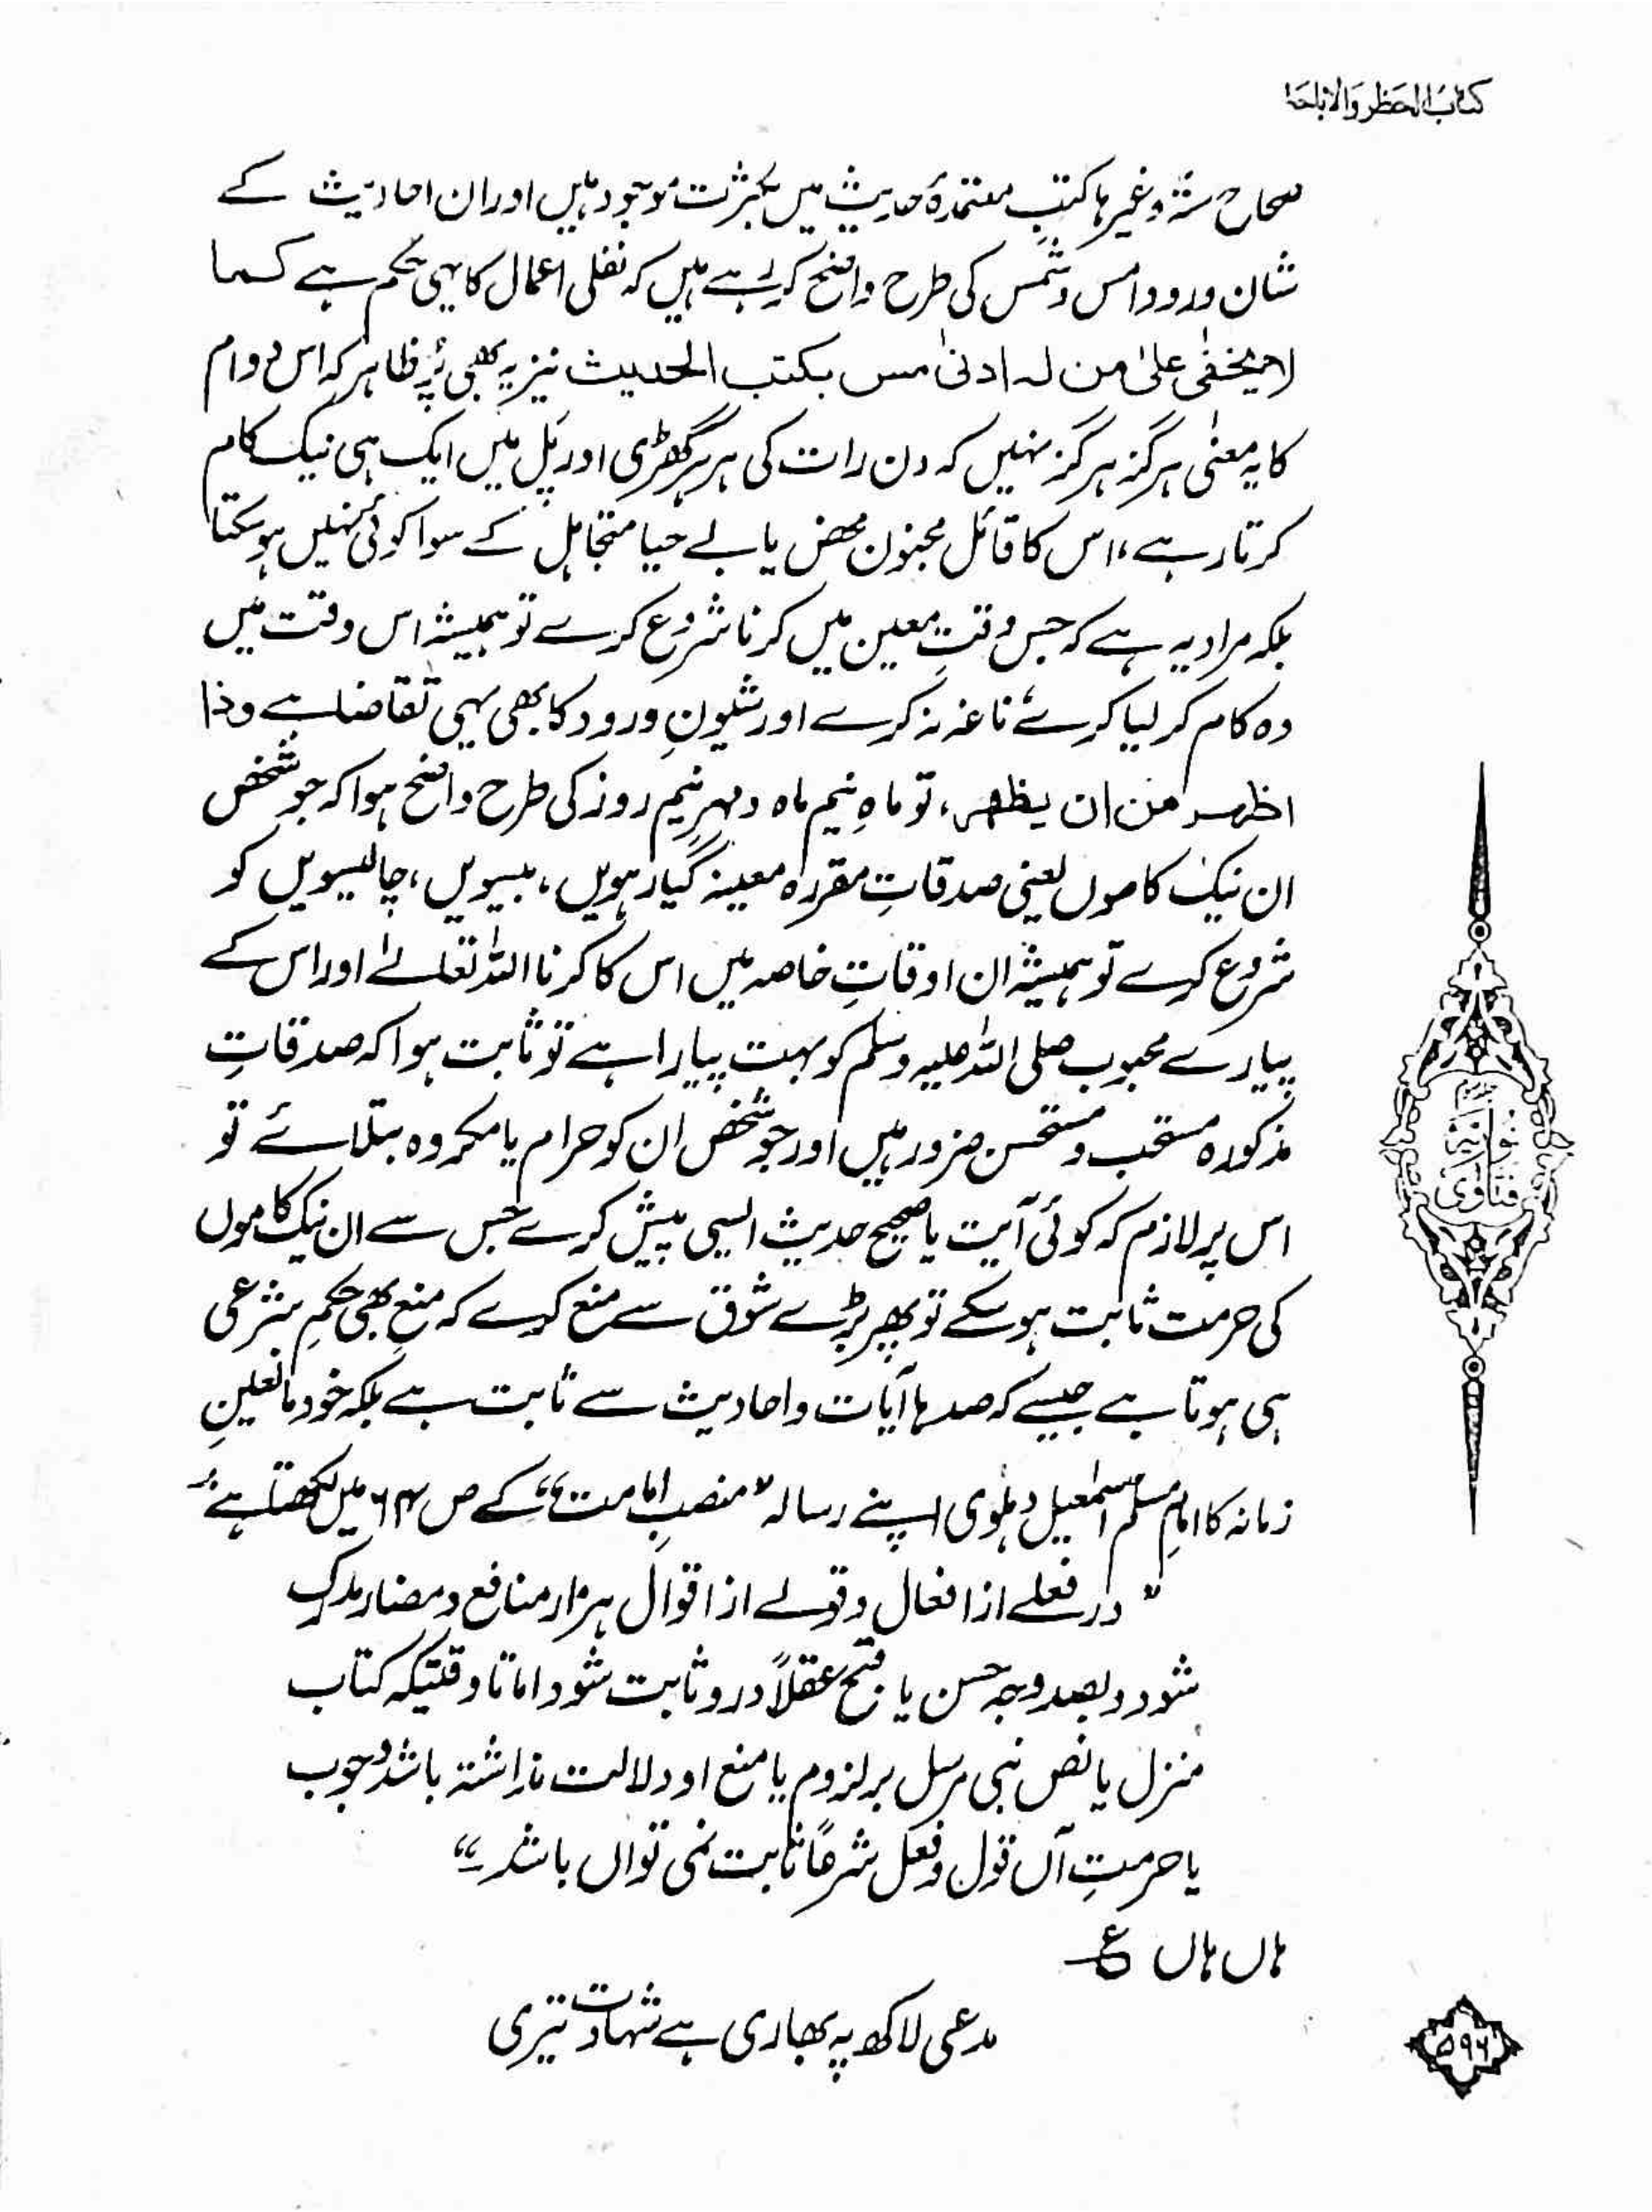 کتاب الحظر والاباحۃ
صحاح ستہ وغیرہا کتبِ معتمدۂ حدیث میں بکثرت موجود ہیں اور ان احادیث کے
شان ورود امس وشمس کی طرح واضح کر رہے ہیں کہ نفلی اعمال کا یہی حکم ہے کما
لا یخفٰی علیٰ من لہ ادنیٰ مس بکتب الحدیث نیز یہ بھی پُر ظاہر کہ اس دوام
کا یہ معنٰی ہرگز ہرگز نہیں کہ دن رات کی ہر ہر گھڑی اور پَل میں ایک ہی نیک کام
کرتا رہے، اس کا قائل مجنون محض یا بے حیا متجاہل کے سوا کوئی نہیں ہو سکتا
بلکہ مراد یہ ہے کہ جس وقتِ معین میں کرنا شروع کرے تو ہمیشہ اس وقت میں
وہ کام کر لیا کرے، ناغہ نہ کرے اور شیونِ ورود کا بھی یہی تقاضا ہے وذا
اظہر من ان یظھر، تو ماہِ نیم ماہ ومہرِ نیم روز کی طرح واضح ہوا کہ جو شخص
ان نیک کاموں یعنی صدقاتِ مقررہ معینہ گیارہویں، بیسویں، چالیسویں کو
شروع کرے تو ہمیشہ ان اوقاتِ خاصہ میں اس کا کرنا اللہ تعالےٰ اور اس کے
پیارے محبوب صلی اللہ علیہ وسلم کو بہت پیارا ہے تو ثابت ہوا کہ صدقاتِ
مذکورہ مستحب و مستحسن ضرور ہیں اور جو شخص ان کو حرام یا مکروہ بتلائے تو
اس پر لازم کہ کوئی آیت یا صحیح حدیث ایسی پیش کرے جس سے ان نیک کاموں
کی حرمت ثابت ہو سکے تو پھر بڑے شوق سے منع کرے کہ منع بھی حکمِ شرعی
ہی ہوتا ہے جیسے کہ صدہا آیات و احادیث سے ثابت ہے بلکہ خود مانعینِ
زمانہ کا امامِ مسلم اسمٰعیل دہلوی اپنے رسالہ "منصبِ امامت" کے ص ۶۴ میں لکھتا ہے
"در فعلے از افعال و قولے از اقوال ہزار منافع و مضار مدرک
شود و بصد وجہ حسن یا قبح عقلاً در و ثابت شود اما تا وقتیکہ کتاب
منزل یا نص نبی مرسل بر لزوم یا منع او دلالت نداشتہ باشد وجوب
یا حرمتِ آں قول و فعل شرعاً ثابت نمی تواں باشد۔"
ہاں ہاں ع
مدعی لاکھ پہ بھاری ہے شہادت تیری
فتاویٰ نوریہ
۵۹۶